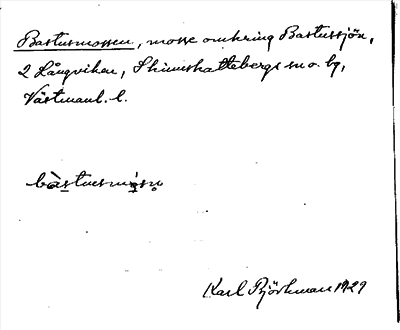 Bastusmossen, mosse omkring Bastussjön,
2 Långviken, Skinnskattebergs sn o. bg,
Västmanl. l.
Karl Björkman 1929